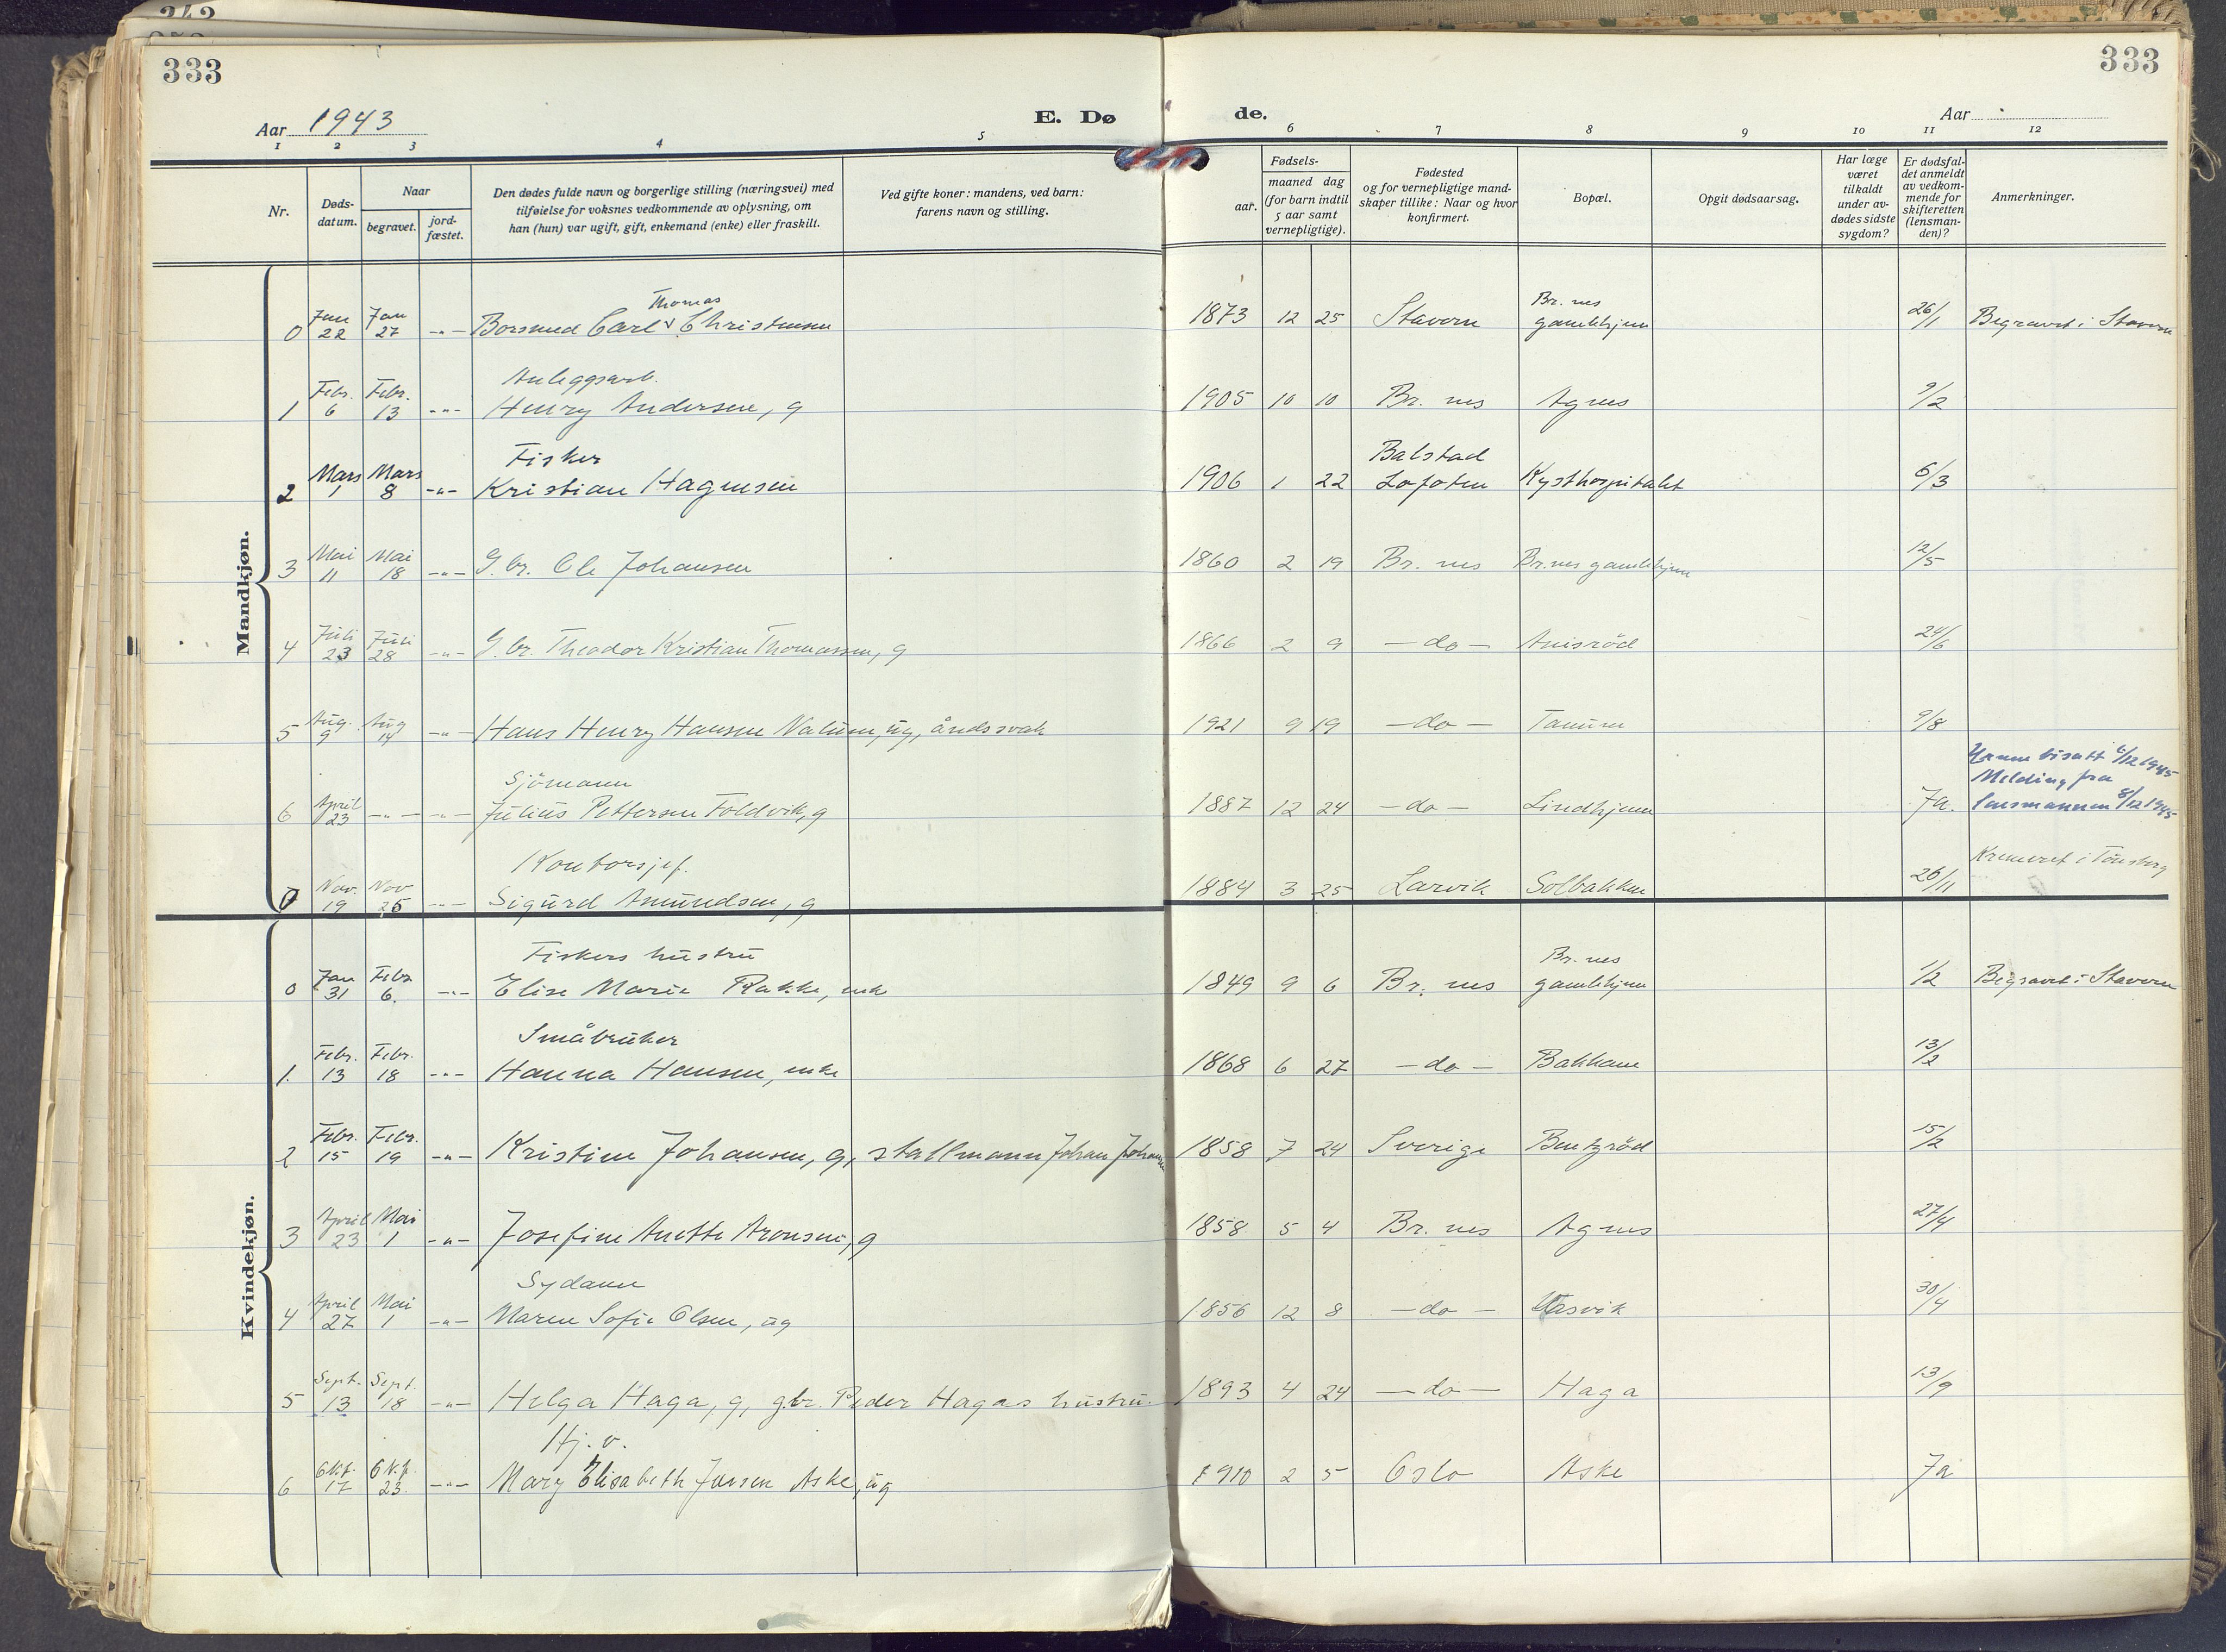 343
333
333
Aar 1943
E. Dø
de.
Aar
1 2 3 4 5 6 7 8 9 10 11 12
Nr.
Døds-
datum.
Naar
begravet.
jord-
fæstet.
Den dødes fulde navn og borgerlige stilling (næringsvei) med
tilføielse for voksnes vedkommende av oplysning, om
han (hun) var ugift, gift, enkemand (enke) eller fraskilt.
Ved gifte koner: mandens, ved barn:
farens navn og stilling.
Fødsels-
aar.
maaned dag
(for barn indtil
5 aar samt
vernepligtige).
Fødested
og for vernepligtige mand-
skaper tillike: Naar og hvor
konfirmert.
Bopæl.
Opgit dødsaarsag.
Har læge
været
tilkaldt
under av-
dødes sidste
sygdom?
Er dødsfal-
det anmeldt
av vedkom-
mende for
skifteretten
(lensman-
den)?
Anmerkninger.
Mandkjøn.
Thomas Br. nes
Jan Jan 26/1
0 22 27 -"- Borsmed Carl v Christensen 1873 12 25 Stavern gamlehjem Begravet i Stavern
Anleggsarb.
Febr. Febr.
1 6 13 -"- Henry Andersen, g 1905 10 10 Br. nes Agnes 9/2
Fisker Balstad
Mars Mars
2 1 8 -"- Kristian Hagensen 1906 1 22 Lofoten Kysthospitalet 6/3
Mai Mai
3 11 18 -"- G.br. Ole Johansen 1860 2 19 Br. nes Br.nes gamlehjem 12/5
Juli Juli
4 23 28 -"- G.br. Theodor Kristian Thomassen, g 1866 2 9 -do- Anisröd 24/6
Aug. Aug
5 9 14 -"- Hans Henry Hansen Nalum, ug, åndssvak 1921 9 19 -do- Tanum 9/8
Sjömann Urnen bisatt 6/12 1945
April Melding fra
6 23 -"- -"- Julius Pettersen Foldvik, g 1887 12 24 -do- Lindhjem Ja. lensmannen 8/12 1945
Kontorsjef. Kremert i Tönsberg
Nov. Nov
7 19 25 -"- Sigurd Amundsen, g 1884 3 25 Larvik Solbakken 26/11
Kvindekjøn.
Fiskers hustru Br. nes
Jan Febr
0 31 6. -"- Elise Marie Rakke, enk 1849 9 6 Br. nes gamlehjem 1/2 Begravet i Stavern
Småbruker
Febr. Febr.
1. 13 18 -"- Hanna Hansen, enke 1868 6 27 -do- Bakkane 13/2
Febr. Febr.
2 15 19 -"- Kristine Johansen, g, stallmann Johan Johansen 1858 7 24 Sverige Bentzröd 15/2
April Mai
3 23 1 -"- Josefine Anette Aronsen, g 1858 5 4 Br. nes Agnes 27/4
Sydame
April Mai
4 27 1 -"- Maren Sofie Olsen, ug 1856 12 8 -do- Vasvik 30/4
Sept. Sept.
5 13 18 -"- Helga Haga, g, g.br. Peder Hagas hustru. 1893 4 24 -do- Haga 13/9
Hj. v.
Okt. Okt.
6 17 23. -"- Mary Elisabeth Jansen Aske, ug 1910 2 5 Oslo Aske Ja